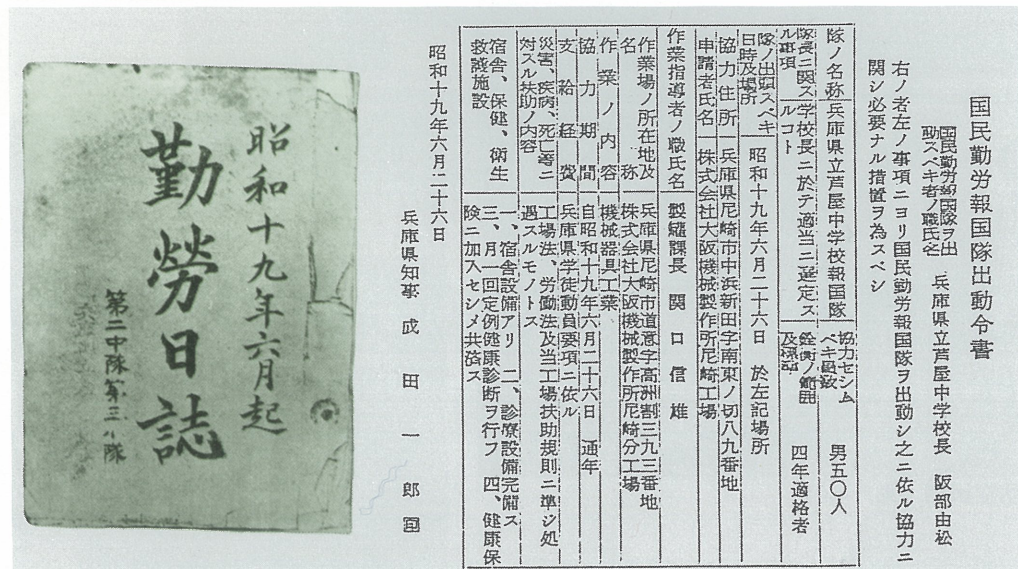 国民勤労報国隊出動令書
国民勤労報国隊ヲ出
動スベキ者ノ職氏名
兵庫県立芦屋中学校長 阪部由松
右ノ者左ノ事項ニヨリ国民勤労報国隊ヲ出動シ之ニ依ル協力ニ
関シ必要ナル措置ヲ為スベシ
隊ノ名称
兵庫県立芦屋中学校報国隊
協力セシム
ベキ員数
男五〇人
隊長ニ関ス
ル事項
学校長ニ於テ適当ニ選定ス
ルコト
銓衡ノ範囲
及標準
四年適格者
隊ノ出頭スベキ
日時及場所
昭和十九年六月二十六日 於左記場所
協力住所
兵庫県尼崎市中浜新田字南東ノ切八九番地
申請者氏名
株式会社大阪機械製作所尼崎工場
作業指導者ノ職氏名
製罐課長 関口信雄
作業場ノ所在地及
名称
兵庫県尼崎市道意字高洲割三九三番地
株式会社大阪機械製作所尼崎分工場
作業ノ内容
機械器具工業
協力期間
自昭和十九年六月二十六日 通年
支給経費
兵庫県学徒動員要項ニ依ル
災害、疾病、死亡等ニ
対スル扶助ノ内容
工場法、労働法及当工場扶助規則ニ準ジ処
遇スルモノトス
宿舎、保健、衛生
救護施設
一、宿舎設備アリ 二、診療設備完備ス
三、月一回定例健康診断ヲ行フ 四、健康保
険ニ加入セシメ共済ス
昭和十九年六月二十六日
兵庫県知事 成田一郎 印
昭和十九年六月起
勤勞日誌
第二中隊第三小隊